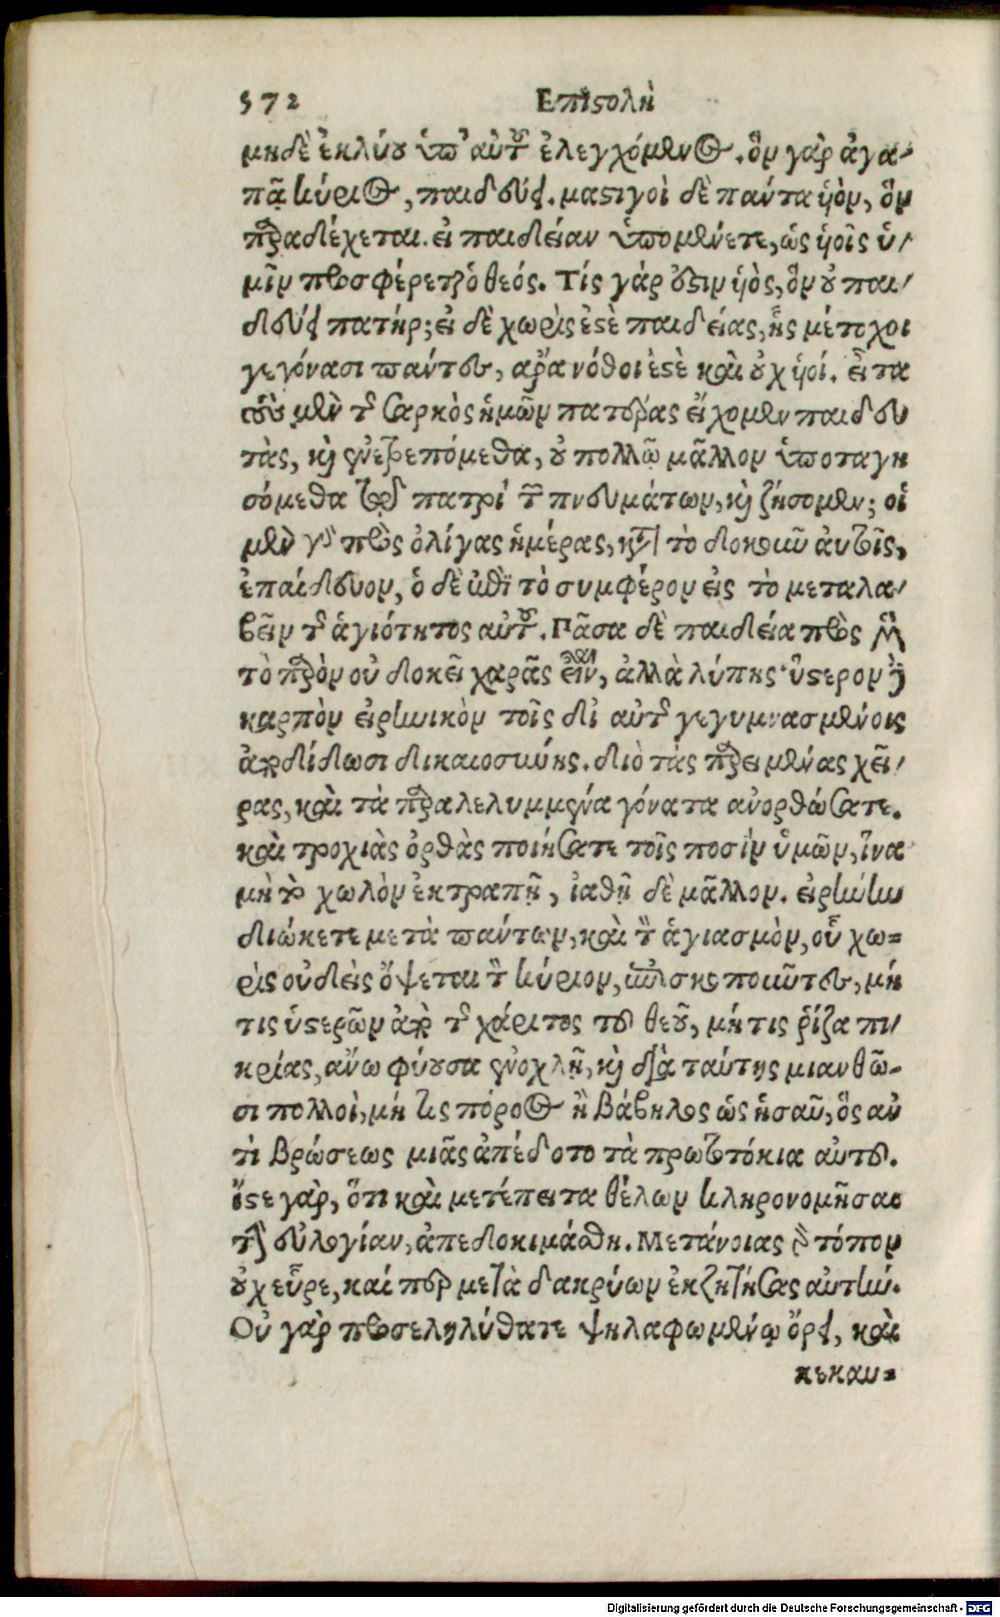 572 Επιστολὴ
μηδὲ ἐκλύου ὑπ' αὐτοῦ ἐλεγχόμενος. ὃν γὰρ ἀγα-
πᾷ κύριος, παιδεύει. μαστιγοῖ δὲ πάντα ἱὸν, ὃν
παραδέχεται. εἰ παιδείαν ὑπομένετε, ὡς ἱοῖς ὑ-
μῖν προσφέρεται ὁ θεός. Τίς γάρ ἐστιν ἱὸς, ὃν οὐ παι-
δεύει πατήρ; εἰ δὲ χωρίς ἐστὲ παιδείας, ἧς μέτοχοι
γεγόνασι πάντες, ἄρα νόθοι ἐστὲ καὶ οὐχ ἱοί. εἶτα
τοὺς μὲν τῆς σαρκὸς ἡμῶν πατέρας εἴχομεν παιδευ
τὰς, καὶ ἐνετρεπόμεθα, οὐ πολλῷ μᾶλλον ὑποταγη
σόμεθα τῷ πατρὶ τῶν πνευμάτων, καὶ ζήσομεν; οἱ
μὲν γὰρ πρὸς ὀλίγας ἡμέρας, κατὰ τὸ δοκοῦν αὐτοῖς,
ἐπαίδευον, ὁ δὲ ἐπὶ τὸ συμφέρον εἰς τὸ μεταλα-
βεῖν τῆς ἁγιότητος αὐτοῦ. Πᾶσα δὲ παιδεία πρὸς μὲν
τὸ παρὸν οὐ δοκεῖ χαρᾶς εἶναι, ἀλλὰ λύπης· ὕστερον δὲ
καρπὸν εἰρηνικὸν τοῖς δι' αὐτῆς γεγυμνασμένοις
ἀποδίδωσι δικαιοσύνης. διὸ τὰς παρειμένας χεῖ-
ρας, καὶ τὰ παραλελυμμένα γόνατα ἀνορθώσατε.
καὶ τροχιὰς ὀρθὰς ποιήσατε τοῖς ποσὶν ὑμῶν, ἵνα
μὴ τὸ χωλὸν ἐκτραπῇ, ἰαθῇ δὲ μᾶλλον. εἰρήνην
διώκετε μετὰ πάντων, καὶ τὸν ἁγιασμὸν, οὗ χω=
ρὶς οὐδεὶς ὄψεται τὸν κύριον, ἐπισκοποῦντες, μή
τις ὑστερῶν ἀπὸ τῆς χάριτος τοῦ θεοῦ, μή τις ῥίζα πι-
κρίας, ἄνω φύουσα ἐνοχλῇ, καὶ διὰ ταύτης μιανθῶ-
σι πολλοὶ, μή τις πόρνος ἢ βέβηλος ὡς ἡσαῦ, ὃς ἀν
τὶ βρώσεως μιᾶς ἀπέδοτο τὰ πρωτοτόκια αὐτοῦ.
ἴστε γὰρ, ὅτι καὶ μετέπειτα θέλων κληρονομῆσαι
τὴν εὐλογίαν, ἀπεδοκιμάσθη. Μετάνοιας γὰρ τόπον
οὐχ εὗρε, καί περ μετὰ δακρύων ἐκζητήσας αὐτήν.
Οὐ γὰρ προσεληλύθατε ψηλαφωμένῳ ὄρει, καὶ
κεκαυ=
Digitalisierung gefördert durch die Deutsche Forschungsgemeinschaft - DFG